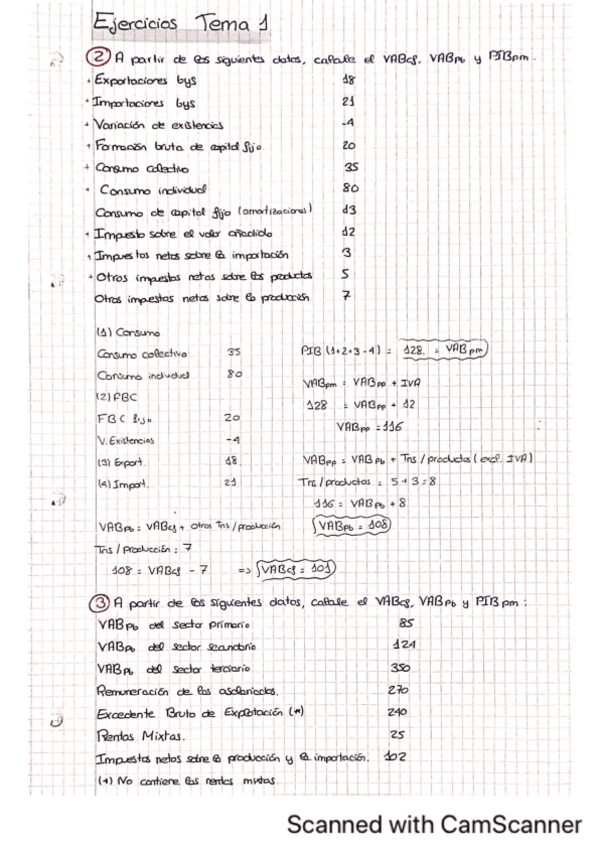 Ejercicios Tema 1
② A partir de los siguientes datos, calcule el VABcf, VABpb y PIBpm.
Exportaciones bys 18
Importaciones bys 21
Variación de existencias -4
Formación bruta de capital fijo 20
Consumo colectivo 35
Consumo individual 80
Consumo de capital fijo (amortizaciones) 13
Impuesto sobre el valor añadido 12
Impuestos netos sobre la importación 3
Otros impuestos netos sobre los productos 5
Otros impuestos netos sobre la producción 7
(1) Consumo
Consumo colectivo 35 PIB (1+2+3-4) = 128 = VABpm
Consumo individual 80
VABpm = VABpp + IVA
(2) FBC
128 = VABpp + 12
FBC fijo 20
VABpp = 116
V. Existencias -4
(3) Export. 18 VABpp = VABpb + Tns / productos (excl. IVA)
(4) Import. 21 Tns / productos = 5+3=8
116 = VABpb + 8
VABpb = VABcf + otros tns / producción VABpb = 108
Tns / Producción = 7
108 = VABcf - 7 => VABcf = 101
③ A partir de los siguientes datos, calcule el VABcf, VABpb y PIBpm:
VABpb del sector primario 85
VABpb del sector secundario 124
VABpb del sector terciario 350
Remuneración de los asalariados. 270
Excedente Bruto de Explotación (*) 240
Rentas Mixtas. 25
Impuestos netos sobre la producción y la importación. 102
(*) No contiene las rentas mixtas
Scanned with CamScanner